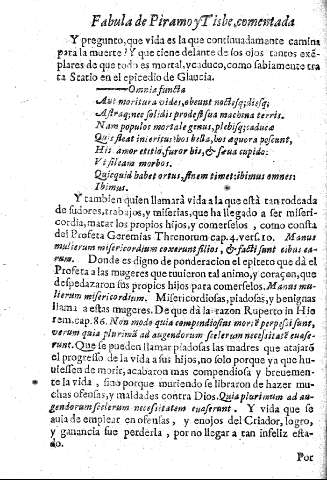 Fabula de Piramo y Tisbe, comentada
Y pregunto, que vida es la que continuadamente camina
para la muerte? Y que tiene delante de los ojos tantos exẽ-
plares de que todo es mortal, y caduco, como sabiamente tra
ta Statio en el epicedio de Glaucia.
Omnia functa
Aut moritura vides, obeunt noctesq; diesq;
Astraq; nec solidis prodest sua machina terris.
Nam populos mortale genus, plebisq; caducæ
Quis fleat interitus: hos bella, hos æquora poscunt,
His amor exitio, furor his, & sæua cupido:
Vt sileam morbos.
Quicquid habet ortus, finem timet: ibimus omnes:
Ibimus.
Y tambien quien llamará vida a la que está tan rodeada
de sudores, trabajos, y miserias, que ha llegado a ser miseri-
cordia, matar los propios hijos, y comerselos, como consta
del Profeta Geremias Threnorum cap. 4. vers. 10. Manus
mulierum misericordium coxerunt filios, & facti sunt cibus ea-
rum. Donde es digno de ponderacion el epiteto que dà el
Profeta a las mugeres que tuuieron tal animo, y coraçon, que
despedazaron sus propios hijos para comerselos. Manus mu-
lierum misericordium. Misericordiosas, piadosas, y benignas
llama a estas mugeres. De que dà la razon Ruperto in Hie
rem. cap. 86. Non modo quia compendiosius morẽ perpessi sunt,
verum quia plurimũ ad augendorum scelerum necessitatẽ euase-
runt. Que se pueden llamar piadosas las madres que atajarõ
el progresso de la vida a sus hijos, no solo porque ya que hu-
uiessen de morir, acabaron mas compendiosa y breuemen-
te la vida, sino porque muriendo se libraron de hazer mu-
chas ofensas, y maldades contra Dios. Quia plurimum ad au-
gendorum scelerum necessitatem euaserunt. Y vida que se
auia de emplear en ofensas, y enojos del Criador, logro,
y ganancia fue perderla, por no llegar a tan infeliz esta-
do.
Por